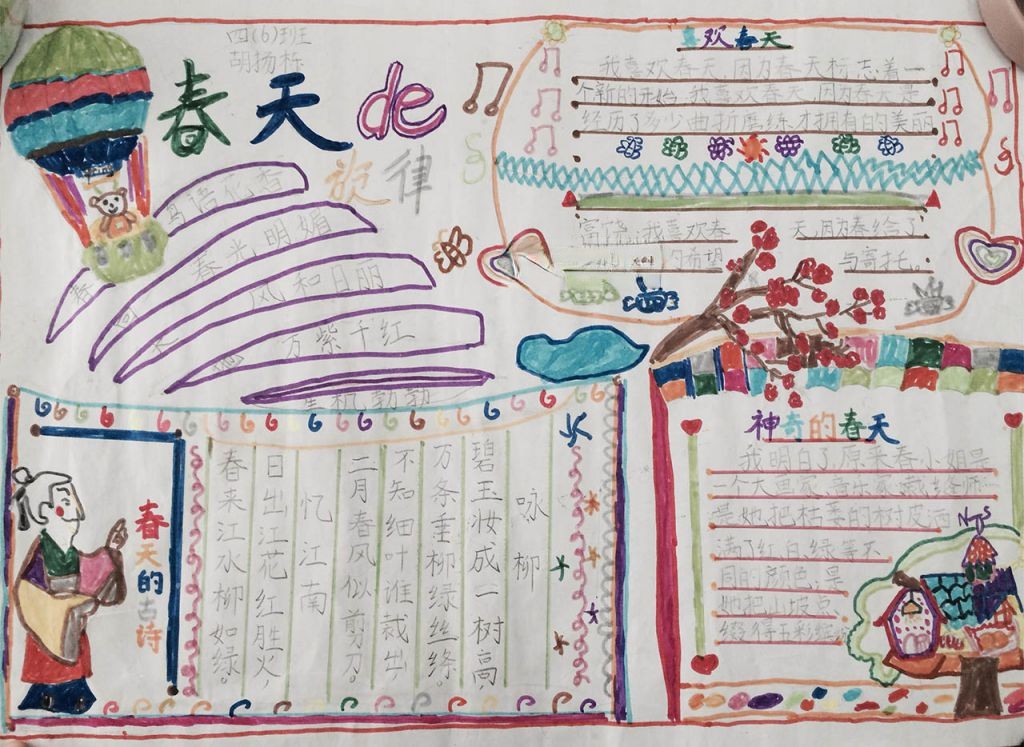 四(6)班
胡扬栎
春天de
旋律
鸟语花香
春光明媚
风和日丽
万紫千红
生机勃勃
喜欢春天
我喜欢春天,因为春天标志着一
个新的开始,我喜欢春天,因为春天是
经历了多少曲折磨练,才拥有的美丽
富饶,我喜欢春天,因为春给了
的希望与寄托。
春天的古诗
咏柳
碧玉妆成一树高,
万条垂柳绿丝绦。
不知细叶谁裁出,
二月春风似剪刀。
忆江南
日出江花红胜火,
春来江水柳如绿。
神奇的春天
我明白了原来春小姐是
一个大画家、音乐家、裁缝师…
是她把枯萎的树皮洒
满了红、白、绿等不
同的颜色,是
她把山坡点
缀得五彩缤
N S